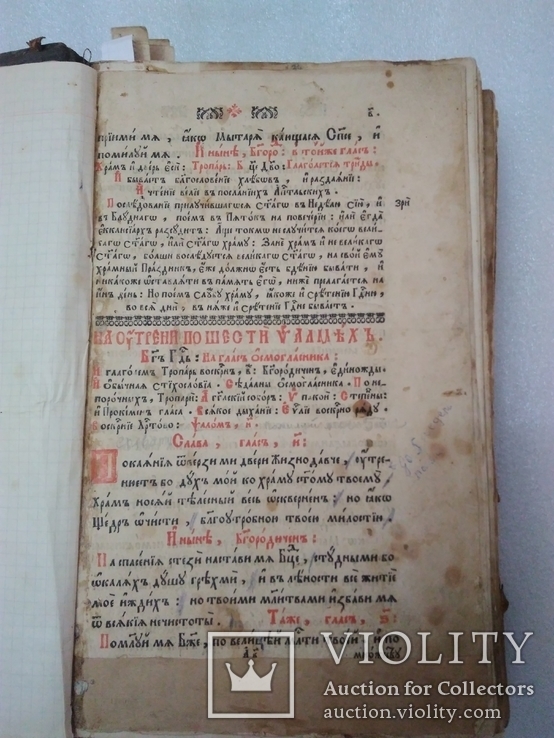 в҃.
прїими мѧ , ꙗко Мытарѧ каюшасѧ Сп҃се , и
помилуй мѧ . И нн҃ѣ , Бг҃оро : в тойже гласъ :
Храмъ и дверь еси : Тропарь : Б҃ц Дв҃о : Глаголетсѧ трищы .
И бываетъ благословенїе хлѣбовъ , и раздаѧнїе :
И чтенїе велїе в посланїихъ Ап҃лскихъ .
Послѣдованїе прилучившагосѧ ст҃агѡ въ Недѣлю сїю , и
въ Блуднагѡ , поемъ в Пѧтокъ на повечерїи : или егда
еклисїархъ разсудитъ : Аще токмѡ не случитсѧ коегѡ вели
кагѡ ст҃агѡ , или ст҃агѡ храму : Зане храмъ и не великагѡ
ст҃агѡ , болши послѣдуетсѧ великагѡ ст҃агѡ , на свой ему
храмный Праздникъ , еже должнѡ есть бдѣнїю бывати , и
никакоже ѡставлѧти въ памѧть егѡ , ниже прилагаетсѧ на
инъ день : Но поемъ службу храму , ꙗкоже и срѣтенїю Гд҃ню ,
во всѧ дни , в нѧже и срѣтенїе Гд҃не бываетъ .
Зри
НА ОУТРЕНИ ПО ШЕСТИ ѰАЛМѢХЪ .
Бг҃ъ Гд҃ь : На гласъ ѡсмогласника :
И глаголемъ Тропарь воскрн҃ъ , в҃ : Бг҃ородиченъ , единожды
И обычнаѧ стїхословїѧ . Сѣдалны ѡсмогласника . По не
порочныхъ , Тропарїи : Агг҃лскїй соборъ : Ѵпакой : Степенны :
и Прокїменъ гласа . Всѧкое дыханїе : Еѵ҃лїе воскрн҃о рѧду .
Воскр҃нїе Хр҃тово : Ѱаломъ , н҃ .
Слава , гласъ , и҃ :
Покаѧнїѧ ѿверзи ми двери жизнодавче , оутре
нюетъ бо духъ мой ко храму ст҃ому твоему
Храмъ носѧй тѣлесный весь ѡскверненъ : но ꙗкѡ
щедръ ѡчисти , благоутробною твоею милостїю .
И нн҃ѣ , Бг҃ородиченъ :
На спасенїѧ стезѧ настави мѧ Бц҃е , студными бо
ѡкалѧхъ душу грѣхми , и в лѣности все житїе
мое иждихъ : но твоими мл҃итвами избави мѧ
ѿ всѧкїѧ нечистоты . Таже , гласъ , ѕ҃ :
Помилуй мѧ Бж҃е , по велицѣй мл҃ти твоей и по
множ҃ву
VIOLITY
Auction for Collectors
auction.violity.com